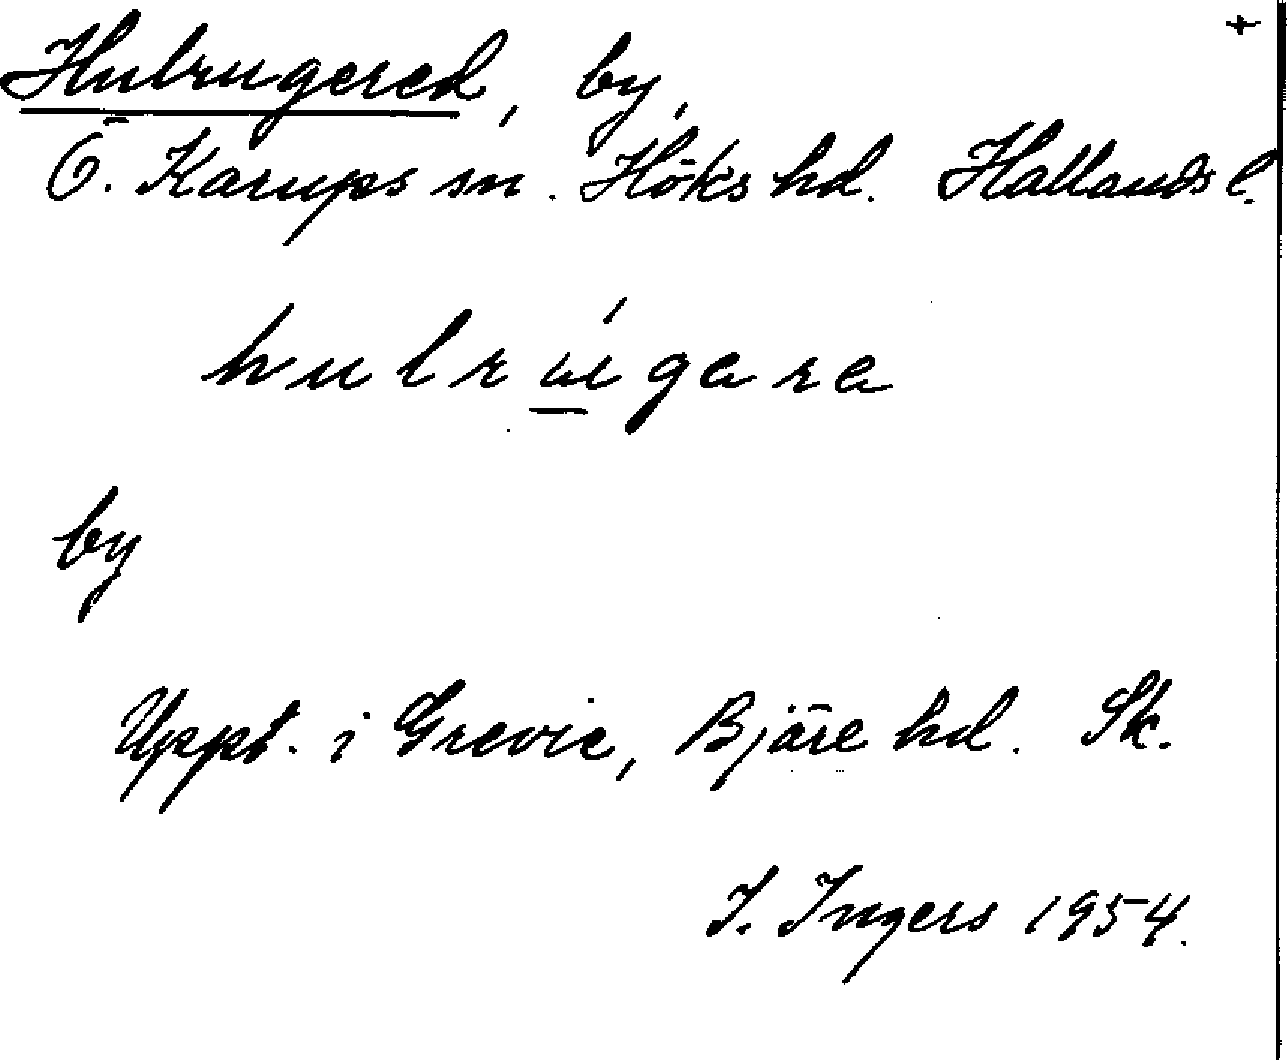 +
Hulrugered, by,
Ö. Karups sn. Höks hd. Hallands l.
by
Uppt. i Grevie, Bjäre hd. Sk.
I. Ingers 1954.